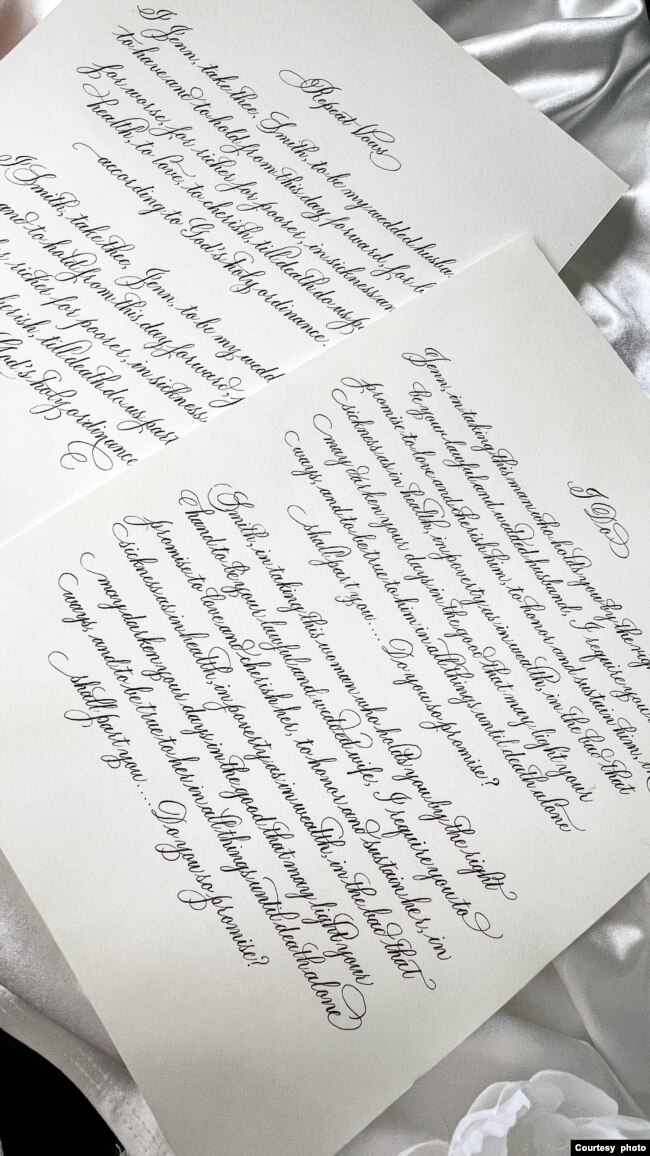 Repeat Vows
I Jenn, take thee, Smith, to be my wedded husba
to have and to hold from this day forward, for b
for worse, for richer for poorer, in sickness an
health, to love, to cherish, till death do us pa
according to God's holy ordinance.
I Smith, take thee, Jenn, to be my wedd
and to hold from this day forward,
richer for poorer, in sickness
cherish, till death do us part
God's holy ordinance
I Do
Jenn, in taking this man who holds you by the righ
be your lawful and wedded husband, I require you
promise to love and cherish him, to honor and sustain him, in
sickness as in health, in poverty as in wealth, in the bad that
may darken your days in the good that may light your
ways, and to be true to him in all things until death alone
shall part you.... Do you so promise?
Smith, in taking this woman who holds you by the right
hand to be your lawful and wedded wife, I require you to
promise to love and cherish her, to honor and sustain her, in
sickness as in health, in poverty as in wealth, in the bad that
may darken your days in the good that may light your
ways, and to be true to her in all things until death alone
shall part you.... Do you so promise?
Courtesy photo